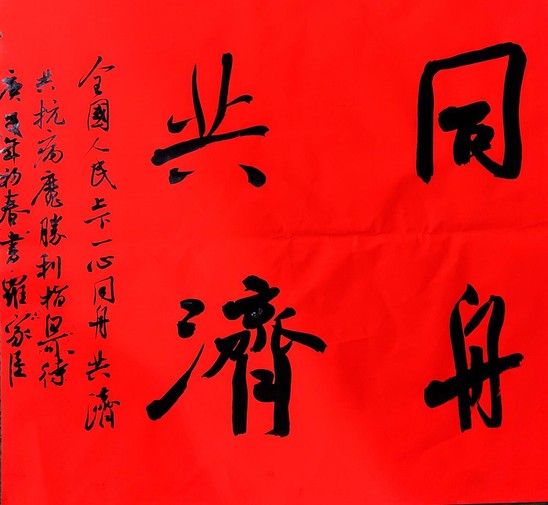 同舟
共濟
全國人民上下一心同舟共濟
共抗病魔勝利指日可待
庚子年初春書羅家臣